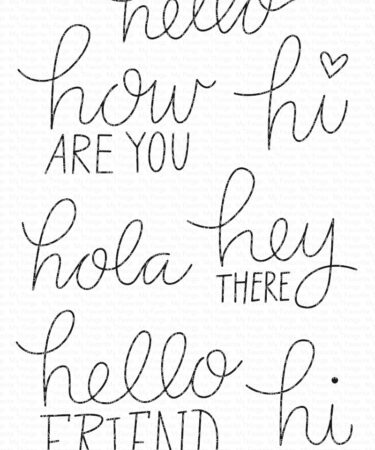 hello
how
ARE YOU
hi
hola
hey
THERE
hello
FRIEND
hi